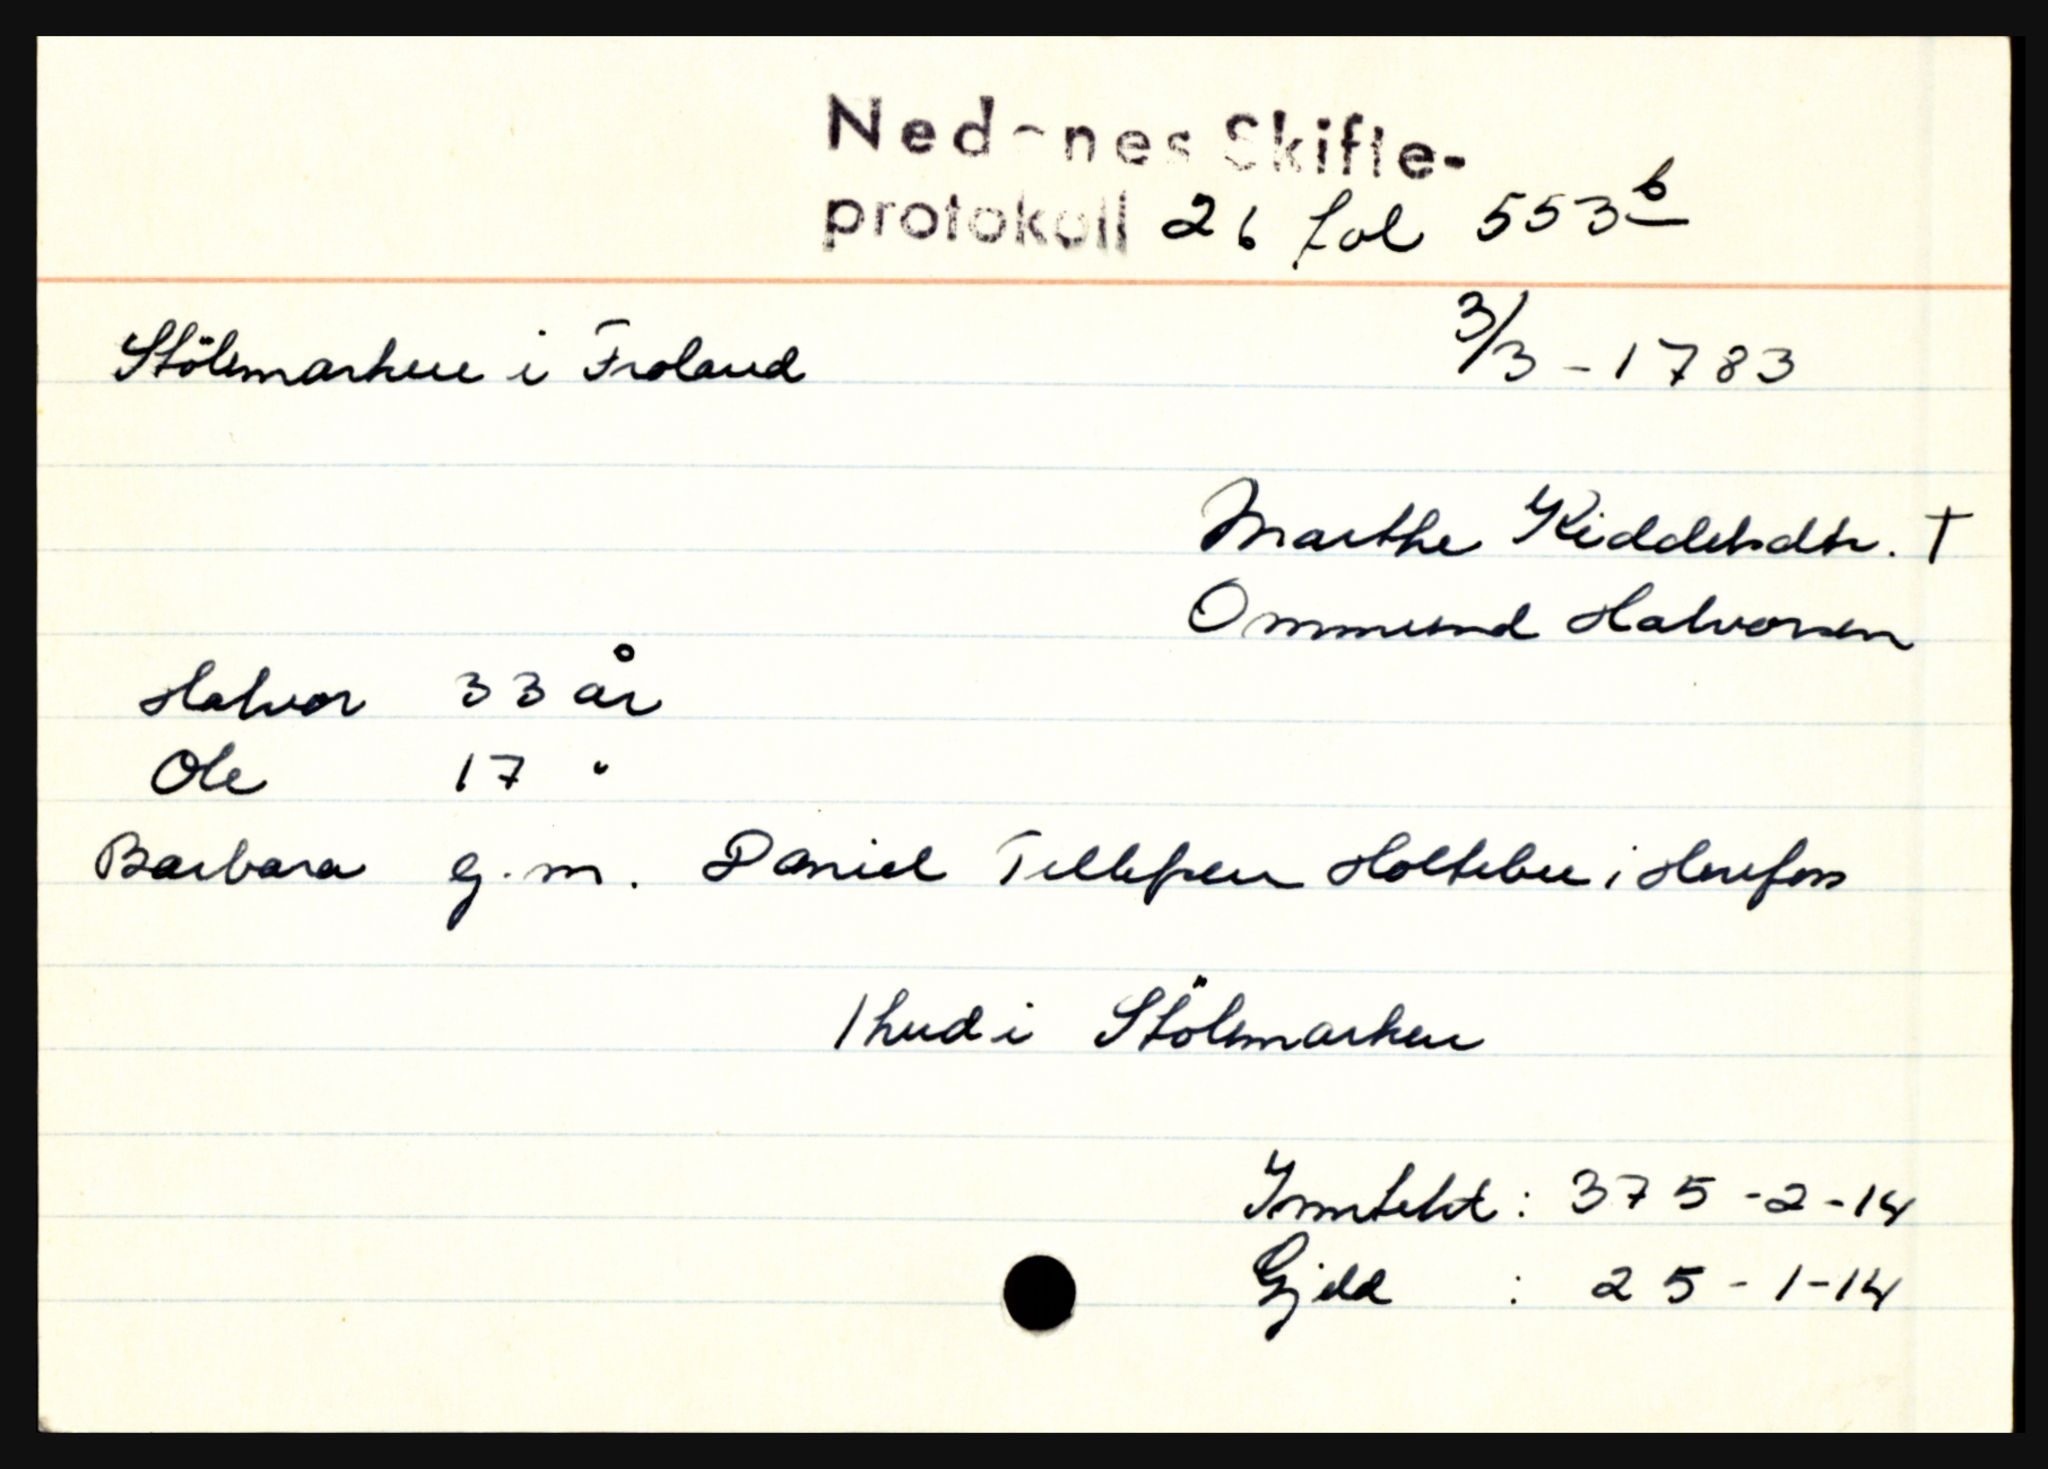 Nedenes Skifte-
protokoll 26 fol 553 b
Stölsmarken i Froland 3/3 - 1783
Marthe Kiddelsdtr. †
Ommund Halvorsen
Halvor 33 år
Ole 17 "
Barbara g.m. Daniel Tellefsen Holtebu i Herefoss
1 hud i Stölsmarken
Inntekt : 375 - 2 - 14
Gjeld : 25 - 1 - 14